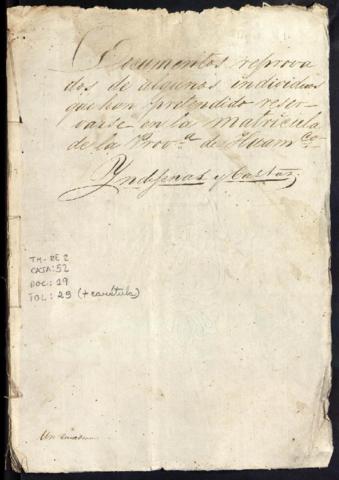 Documentos reprova
dos de algunos individuos
que han pretendido reser-
varse en la matricula
de la Prov.a de Huam.co
Yndijenas y Castas.
TM-RE 2
CAJA: 52
DOC: 19
FOL: 25 (+ carátula)
Un